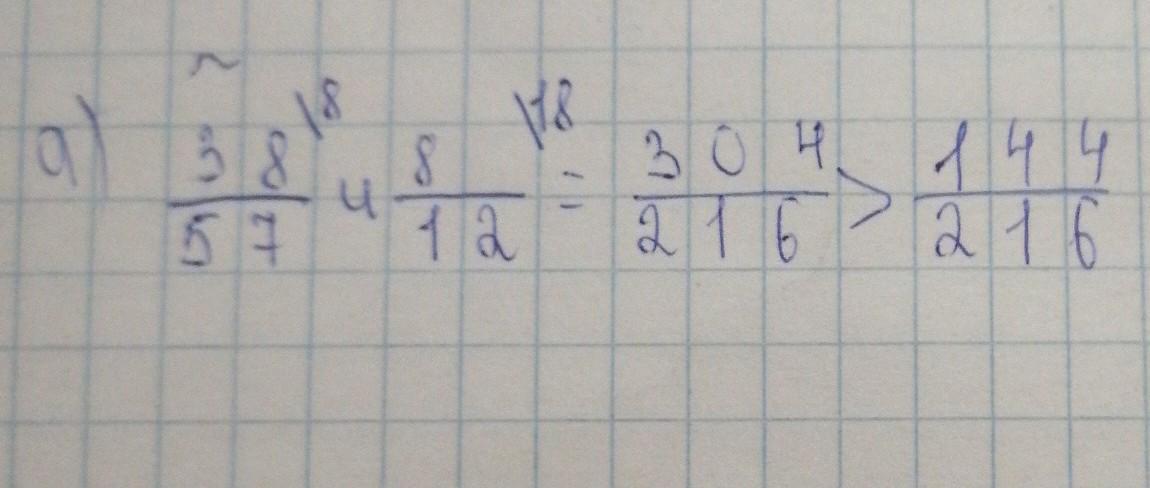 а) 38/57 \8 и 8/12 \18 = 304/216 > 144/216